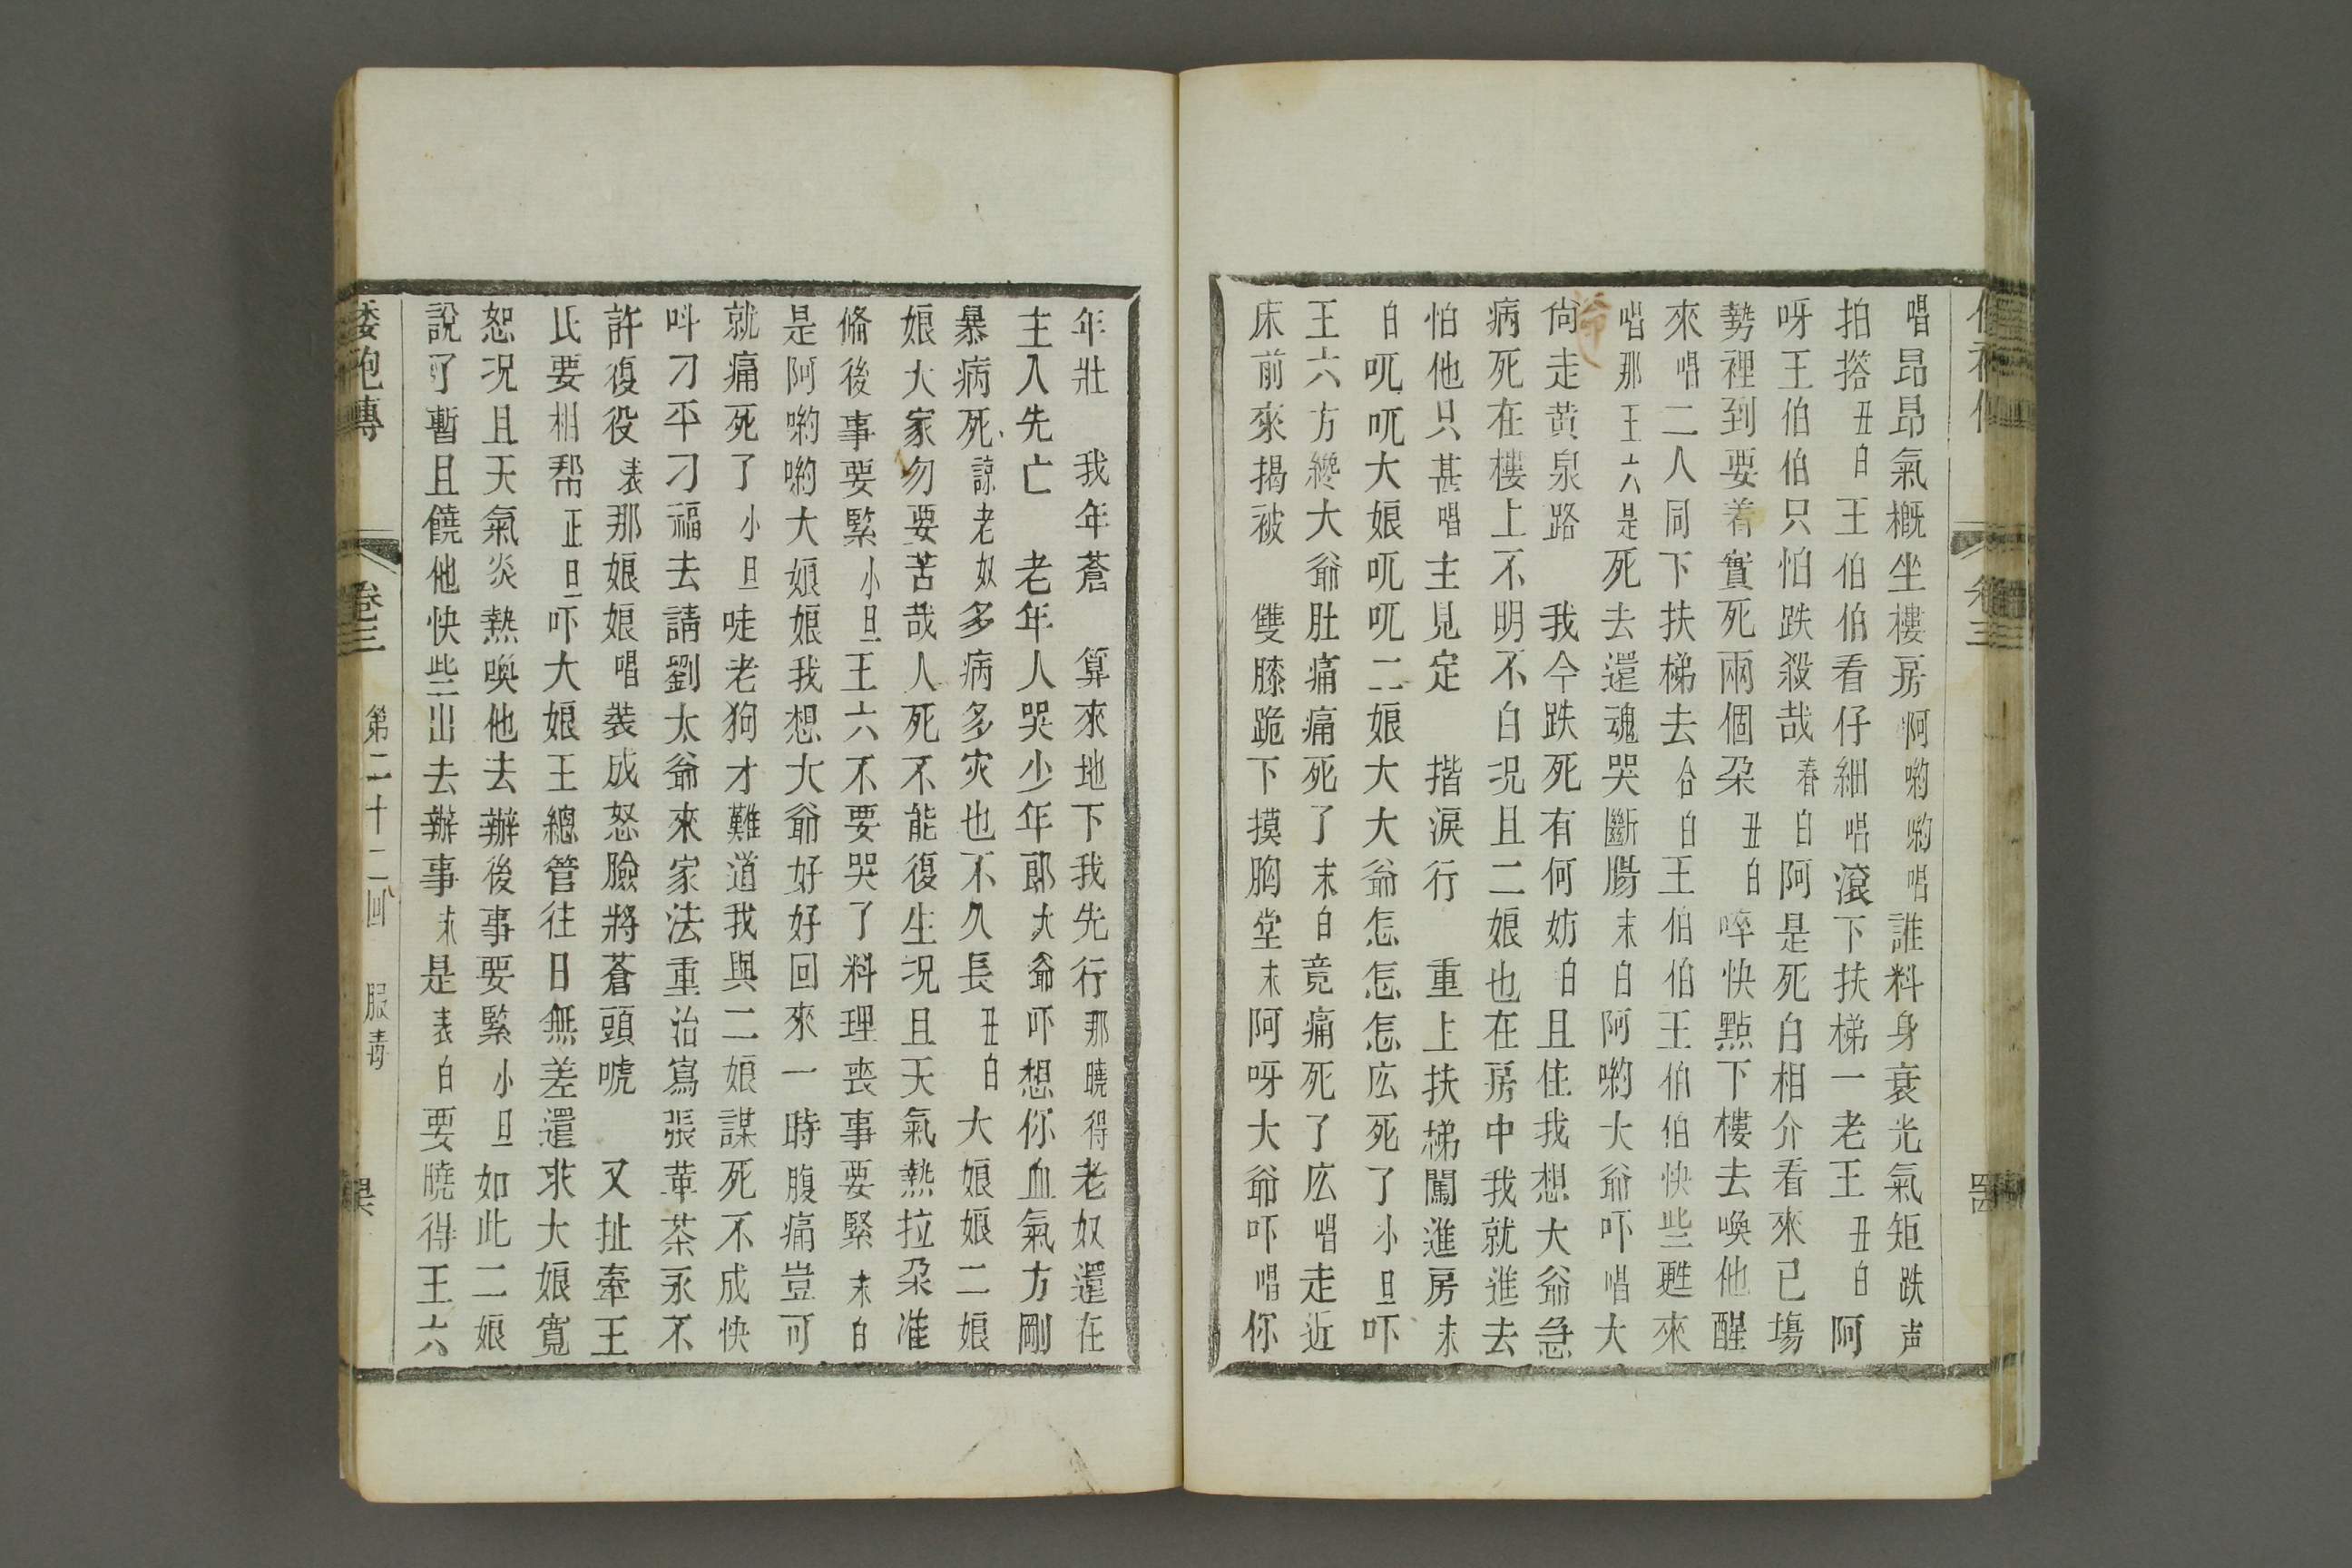 唱昂昂氣概坐樓房啊喲喲唱誰料身衰光氣矩跌声
拍撘丑白王伯伯看仔細唱滾下扶梯一老王丑白阿
呀王伯伯只怕跌殺哉春白阿是死白相介看來已塲
勢裡到要着實死兩個朶丑白啐快點下樓去喚他醒
來唱二人同下扶梯去合白王伯伯王伯伯快些甦來
唱那王六是死去還魂哭斷腸末白阿喲大爺吓唱大
爺
尙走黃泉路 我今跌死有何妨白且住我想大爺急
病死在樓上不明不白况且二娘也在房中我就進去
怕他只甚唱主見定 揩淚行 重上扶梯闖進房末
白呃呃大娘呃呃二娘大大爺怎怎怎庅死了小旦吓
王六方纔大爺肚痛痛死了末白竟痛死了庅唱走近
床前來揭被 雙膝跪下摸胸堂末阿呀大爺吓唱你
年壯 我年蒼 算來地下我先行那曉得老奴還在
主入先亡 老年人哭少年郎大爺吓想你血氣方剛
暴病死諒老奴多病多灾也不久長丑白大娘娘二娘
娘大家勿要苦哉人死不能復生况且天氣熱拉朶准
俻後事要緊小旦王六不要哭了料理丧事要緊末白
是阿喲喲大娘娘我想大爺好好回來一時腹痛豈可
就痛死了小旦哇老狗才難道我與二娘謀死不成快
呌刁平刁福去請劉太爺來家法重治寫張革茶永不
許復役表那娘娘唱裝成怒臉將蒼頭唬 又扯牽王
氏要相帮正旦吓大娘王總管往日無差還求大娘寬
恕况且天氣炎熱喚他去辦後事要緊小旦如此二娘
說了暫且饒他快些出去辦事末是表白要曉得王六
倭袍傳 卷三 第二十二回 服毒